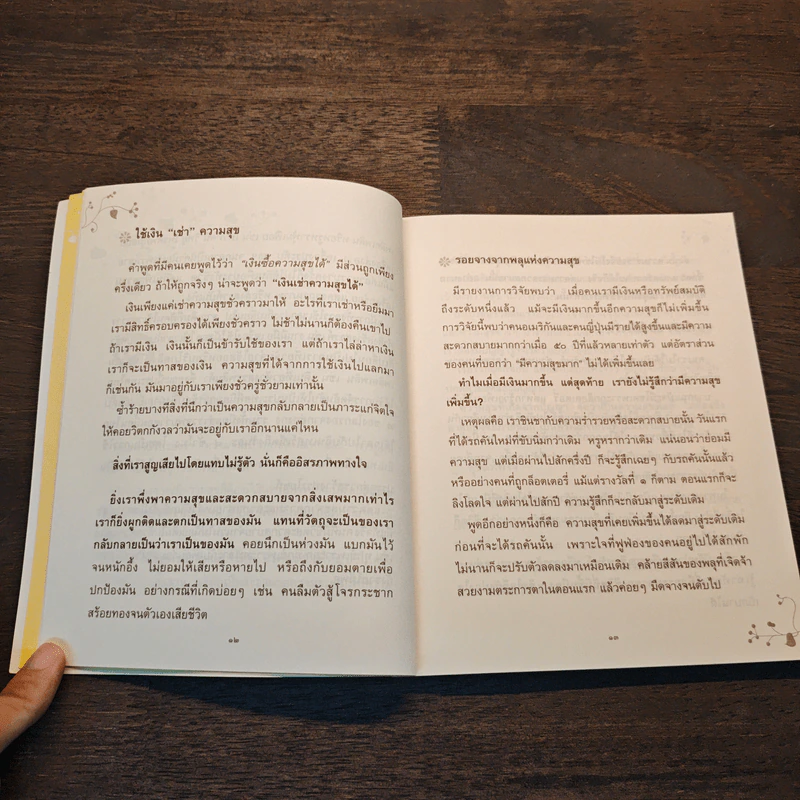 ใช้เงิน “เช่า” ความสุข
คำพูดที่มีคนเคยพูดไว้ว่า “เงินซื้อความสุขได้” มีส่วนถูกเพียง
ครึ่งเดียว ถ้าให้ถูกจริงๆ น่าจะพูดว่า “เงินเช่าความสุขได้”
เงินเพียงแค่เช่าความสุขชั่วคราวมาให้ อะไรที่เราเช่าหรือยืมมา
เรามีสิทธิ์ครอบครองได้เพียงชั่วคราว ไม่ช้าไม่นานก็ต้องคืนเขาไป
ถ้าเรามีเงิน เงินนั้นก็เป็นข้ารับใช้ของเรา แต่ถ้าเราไล่ล่าหาเงิน
เราก็จะเป็นทาสของเงิน ความสุขที่ได้จากการใช้เงินไปแลกมา
ก็เช่นกัน มันมาอยู่กับเราเพียงชั่วครู่ชั่วยามเท่านั้น
ซ้ำร้ายบางทีสิ่งที่นึกว่าเป็นความสุขกลับกลายเป็นภาระแก่จิตใจ
ให้คอยวิตกกังวลว่ามันจะอยู่กับเราอีกนานแค่ไหน
สิ่งที่เราสูญเสียไปโดยแทบไม่รู้ตัว นั่นก็คืออิสรภาพทางใจ
ยิ่งเราพึ่งพาความสุขและสะดวกสบายจากสิ่งเสพมากเท่าไร
เราก็ยิ่งผูกติดและตกเป็นทาสของมัน แทนที่วัตถุจะเป็นของเรา
กลับกลายเป็นว่าเราเป็นของมัน คอยนึกเป็นห่วงมัน แบกมันไว้
จนหนักอึ้ง ไม่ยอมให้เสียหรือหายไป หรือถึงกับยอมตายเพื่อ
ปกป้องมัน อย่างกรณีที่เกิดบ่อยๆ เช่น คนลืมตัวสู้โจรกระชาก
สร้อยทองจนตัวเองเสียชีวิต
๑๒
รอยจางจากพลุแห่งความสุข
มีรายงานการวิจัยพบว่า เมื่อคนเรามีเงินหรือทรัพย์สมบัติ
ถึงระดับหนึ่งแล้ว แม้จะมีเงินมากขึ้นอีกความสุขก็ไม่เพิ่มขึ้น
การวิจัยนี้พบว่าคนอเมริกันและคนญี่ปุ่นมีรายได้สูงขึ้นและมีความ
สะดวกสบายมากกว่าเมื่อ ๕๐ ปีที่แล้วหลายเท่าตัว แต่อัตราส่วน
ของคนที่บอกว่า “มีความสุขมาก” ไม่ได้เพิ่มขึ้นเลย
ทำไมเมื่อมีเงินมากขึ้น แต่สุดท้าย เรายังไม่รู้สึกว่ามีความสุข
เพิ่มขึ้น?
เหตุผลคือ เราชินชากับความร่ำรวยหรือสะดวกสบายนั้น วันแรก
ที่ได้รถคันใหม่ที่ขับนิ่มกว่าเดิม หรูหรากว่าเดิม แน่นอนว่าย่อมมี
ความสุข แต่เมื่อผ่านไปสักครึ่งปี ก็จะรู้สึกเฉยๆ กับรถคันนั้นแล้ว
หรืออย่างคนที่ถูกล็อตเตอรี่ แม้แต่รางวัลที่ ๑ ก็ตาม ตอนแรกก็จะ
ลิงโลดใจ แต่ผ่านไปสักปี ความรู้สึกก็จะกลับมาสู่ระดับเดิม
พูดอีกอย่างหนึ่งก็คือ ความสุขที่เคยเพิ่มขึ้นได้ลดมาสู่ระดับเดิม
ก่อนที่จะได้รถคันนั้น เพราะใจที่ฟูฟ่องของคนอยู่ไปได้สักพัก
ไม่นานก็จะปรับตัวลดลงมาเหมือนเดิม คล้ายสีสันของพลุที่เจิดจ้า
สวยงามตระการตาในตอนแรก แล้วค่อยๆ มืดจางจนดับไป
๑๓